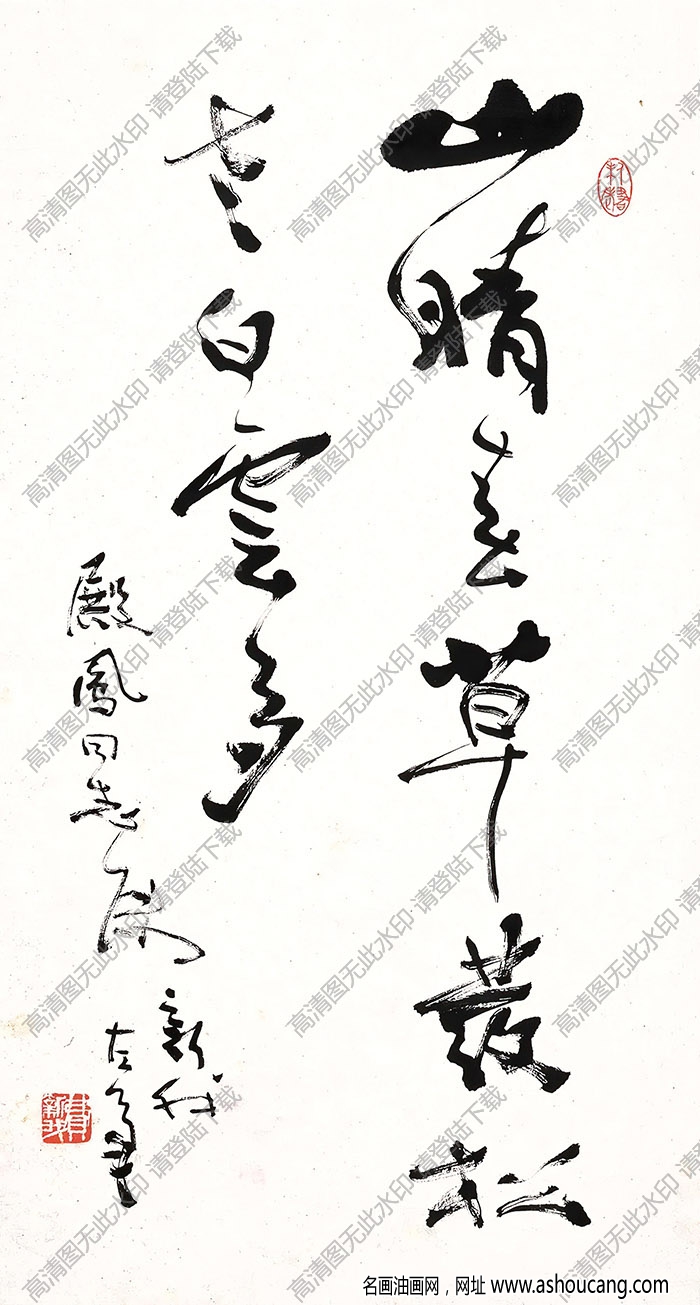 山晴春草發松
老白雲多
殿鳳同志屬
新我
左筆
費新我
高清图无此水印 请登陆下载
名画油画网，网址 www.ashoucang.com